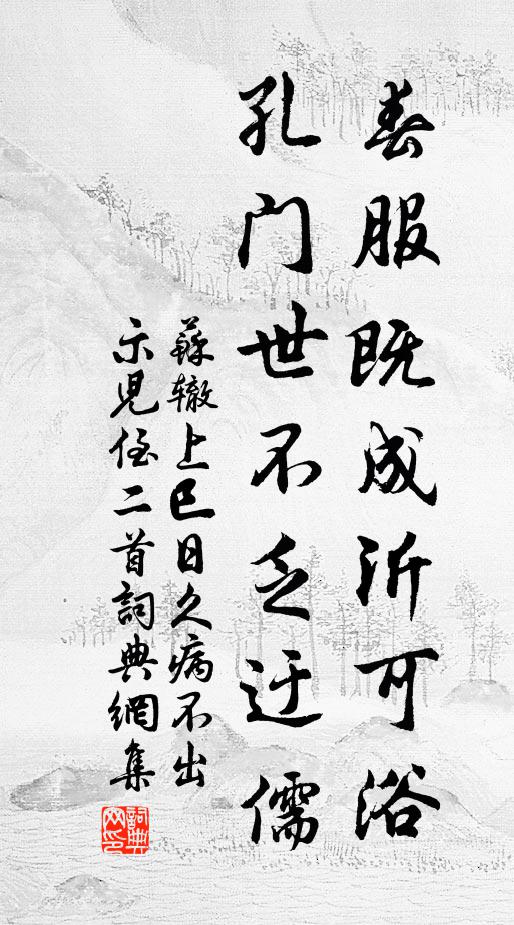 春服既成沂可浴
孔门世不乏迂儒
蘇辙上巳日久病不出
示児侄二首詞典網集
詞典网印